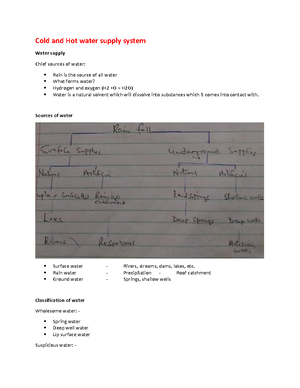 Cold and Hot water supply system
Water supply
Chief sources of water:
Rain is the source of all water
What forms water?
Hydrogen and oxygen (H2 +O = H2O)
Water is a natural solvent which will dissolve into substances which it comes into contact with.
Sources of water
Rain fall
Surface Supplies Underground Supplies
Natural Artificial Natural Artificial
Land Springs Shallow wells
Lakes Deep Springs Deep wells
Rivers Reservoirs Artesian
wells
Surface water - Rivers, streams, dams, lakes, etc.
Rain water - Precipitation - Roof catchment
Ground water - Springs, shallow wells
Classification of water
Wholesome water: -
Spring water
Deep well water
Up surface water
Suspicious water: -